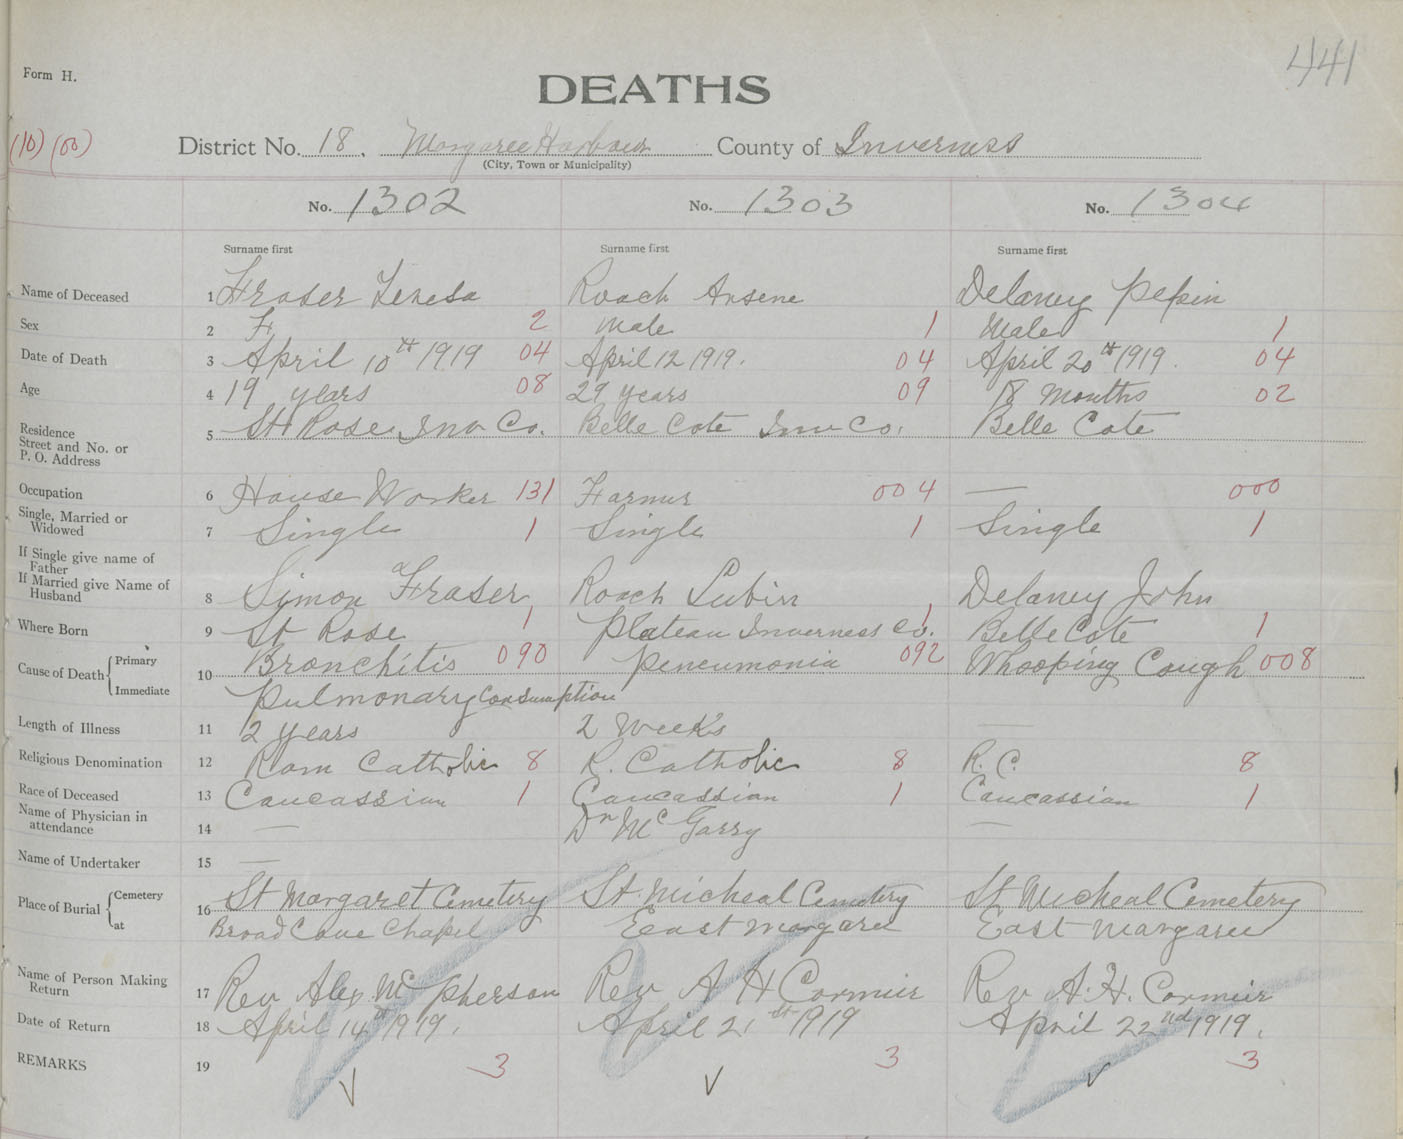 441
Form H.
DEATHS
(10) (00)
District No. 18. Margaree Harbour County of Inverness
(City, Town or Municipality)
No. 1302 No. 1303 No. 1304
Surname first Surname first Surname first
Name of Deceased 1 Fraser Teresa Roach Arsene Delaney Pepin
Sex 2 F 2 Male 1 Male 1
Date of Death 3 April 10th 1919 04 April 12 1919. 04 April 20th 1919. 04
Age 4 19 years 08 29 years 09 18 Months 02
Residence
Street and No. or
P. O. Address
5 St Rose Inv Co. Belle Cote Inv Co. Belle Cote
Occupation 6 House Worker 131 Farmer 004 — 000
Single, Married or
Widowed
7 Single 1 Single 1 Single 1
If Single give name of
Father
If Married give Name of
Husband
8 Simon Fraser Roach Lubin Delaney John
Where Born 9 St Rose 1 Plateau Inverness Co. 1 Belle Cote 1
Cause of Death { Primary
Immediate
10 Bronchitis 090 Peneumonia 092 Whooping Cough 008
Pulmonary Consumption
Length of Illness 11 2 years 2 Weeks —
Religious Denomination 12 Rom Catholic 8 R. Catholic 8 R. C. 8
Race of Deceased 13 Caucassian 1 Caucassian 1 Caucassian 1
Name of Physician in
attendance
14 — Dr McGarry —
Name of Undertaker 15 —
Place of Burial { Cemetery
at
16 St Margaret Cemetery St. Micheal Cemetery St Micheal Cemetery
Broad Cove Chapel East Margaree East Margaree
Name of Person Making
Return
17 Rev Alex. McPherson Rev A H Cormier Rev A. H. Cormier
Date of Return 18 April 14th 1919. April 21st 1919 April 22nd 1919.
REMARKS 19 3 3 3